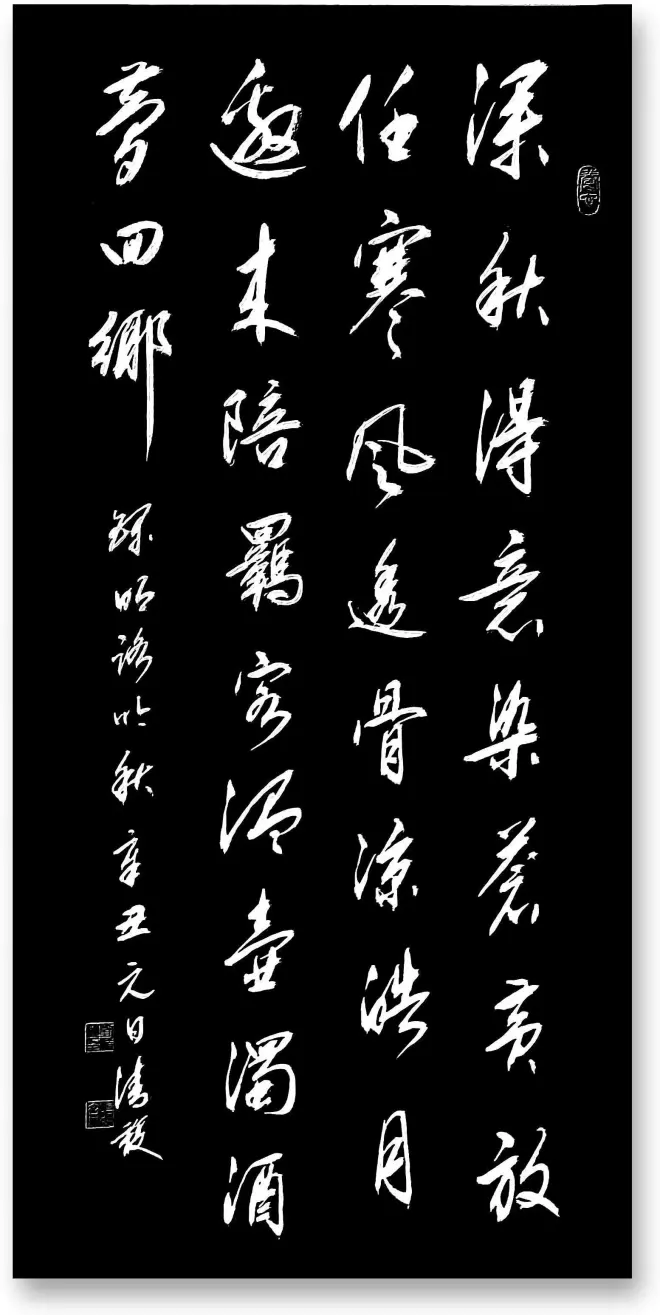 深秋得意染蒼黄放
任寒風透骨涼皓月
邀来陪羈客温壺濁酒
夢回鄉
錄明路吟秋辛丑元日清馥